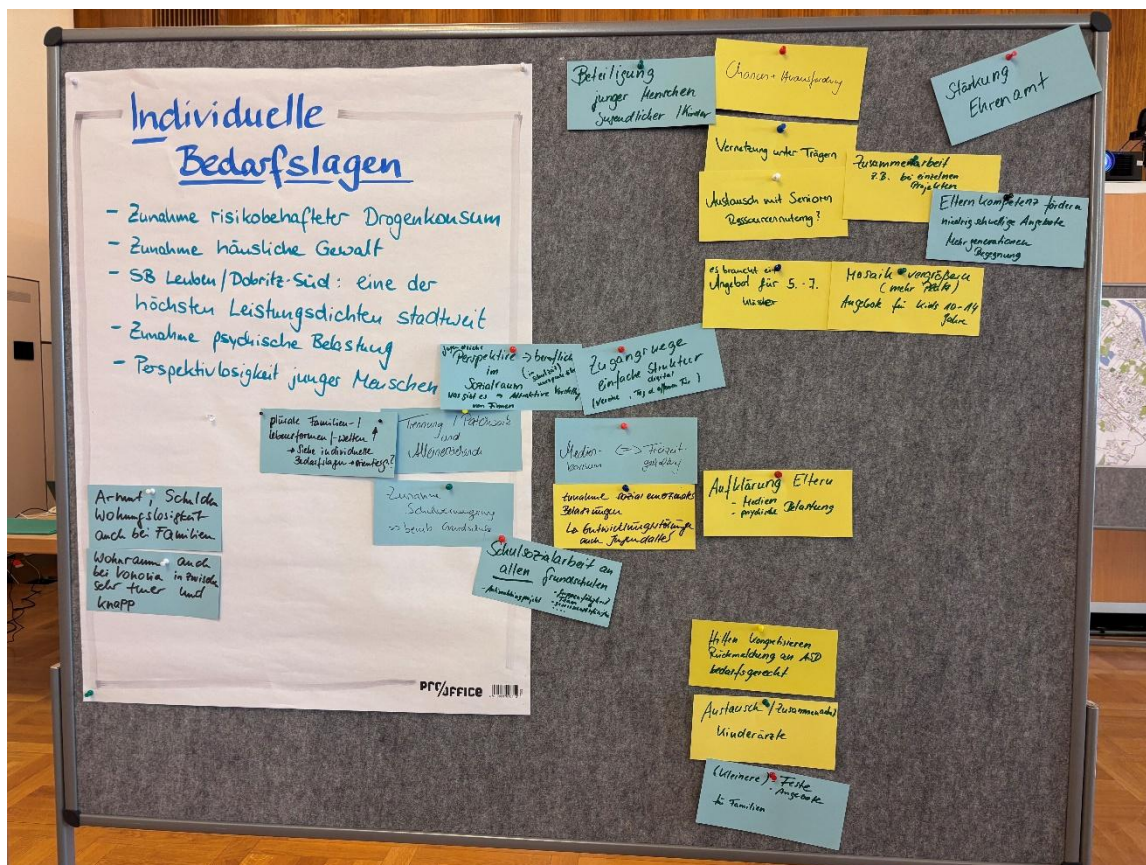 Individuelle
Bedarfslagen
- Zunahme risikobehafteter Drogenkonsum
- Zunahme häusliche Gewalt
- SB Leuben/Dobritz-Süd: eine der
höchsten Leistungsdichten stadtweit
- Zunahme psychische Belastung
- Perspektivlosigkeit junger Menschen
plurale Familien-/
Lebensformen/-welten ↑
→ Siehe individuelle
Bedarfslagen
Trennung / Patchwork
und
Alleinerziehende
Zunahme
bereits Grundschule
Armut, Schulden
Wohnungslosigkeit
auch bei Familien
Wohnraum auch
bei Vonovia inzwischen
sehr teuer und
knapp
PRO/OFFICE
Perspektive → beruflich
im
Sozialraum
was gibt es → Attraktive
von Firmen
Zugangswege
einfache Struktur
digital
(Vereine, Tag d. offenen Tür)
Medien-
konsum <=> Freizeit-
gestaltung
Zunahme sozial emotionales
Belastungen
↳ Entwicklungsstörungen
auch Jugendalter
Schulsozialarbeit an
allen Grundschulen
- Antimobbingprojekt
Beteiligung
junger Menschen
Jugendlicher / Kinder
Chancen + Herausforderung
Vernetzung unter Trägern
Austausch mit Senioren
Ressourcennutzung?
Zusammenarbeit
z.B. bei einzelnen
Projekten
Stärkung
Ehrenamt
Elternkompetenz fördern
niedrigschwellige Angebote
Mehrgenerationen
Begegnung
es braucht ein
Angebot für 5.-7.
Klässler
Mosaik vergrößern
(mehr Plätze)
Angebote für Kids 10-14
Jahre
Aufklärung Eltern
- Medien
- psychische Belastung
Hilfen konkretisieren
Rückmeldung an ASD
bedarfsgerecht
Austausch/Zusammenarbeit
Kinderärzte
(Kleinere) - Feste
- Angebote
für Familien